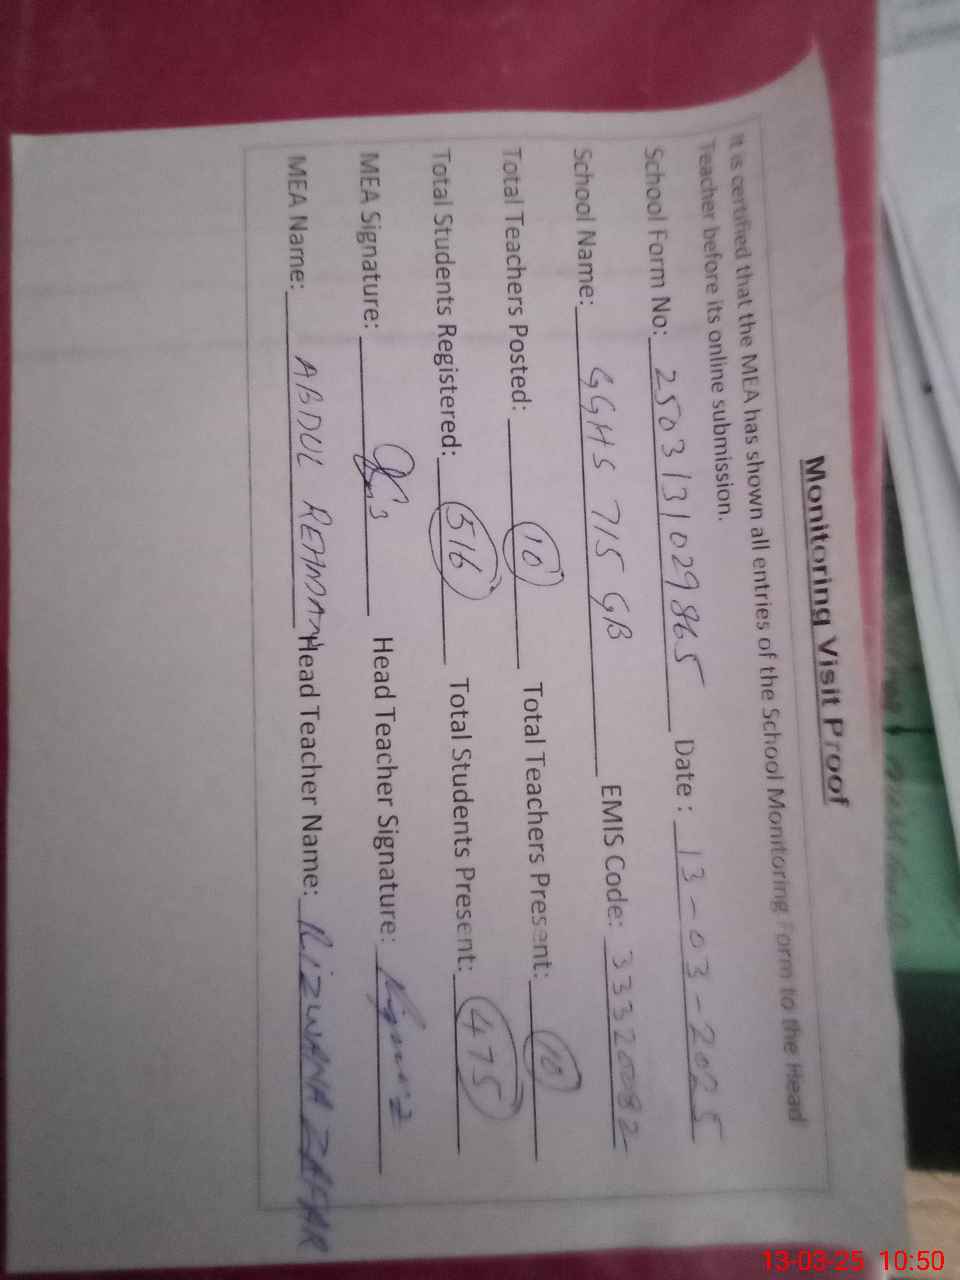 Monitoring Visit Proof
It is certified that the MEA has shown all entries of the School Monitoring Form to the Head
Teacher before its online submission.
School Form No: 25031310298​65 Date : 13-03-2025
School Name: GGHS 715 GB EMIS Code: 33320082
Total Teachers Posted: 10 Total Teachers Present: 10
Total Students Registered: 516 Total Students Present: 475
MEA Signature: Head Teacher Signature:
MEA Name: ABDUL REHMAN Head Teacher Name: RIZWANA ZAFAR
13-03-25 10:50